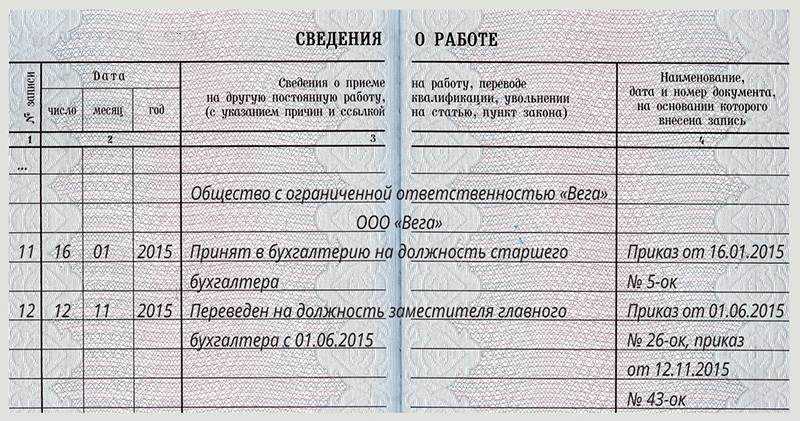 СВЕДЕНИЯ О РАБОТЕ
№ записи
Дата
число
месяц
год
Сведения о приеме на работу, переводе
на другую постоянную работу, квалификации, увольнении
(с указанием причин и ссылкой на статью, пункт закона)
Наименование,
дата и номер документа,
на основании которого
внесена запись
1 2 3 4
...
Общество с ограниченной ответственностью «Вега»
ООО «Вега»
11 16 01 2015 Принят в бухгалтерию на должность старшего Приказ от 16.01.2015
бухгалтера № 5-ок
12 12 11 2015 Переведен на должность заместителя главного Приказ от 01.06.2015
бухгалтера с 01.06.2015 № 26-ок, приказ
от 12.11.2015
№ 43-ок